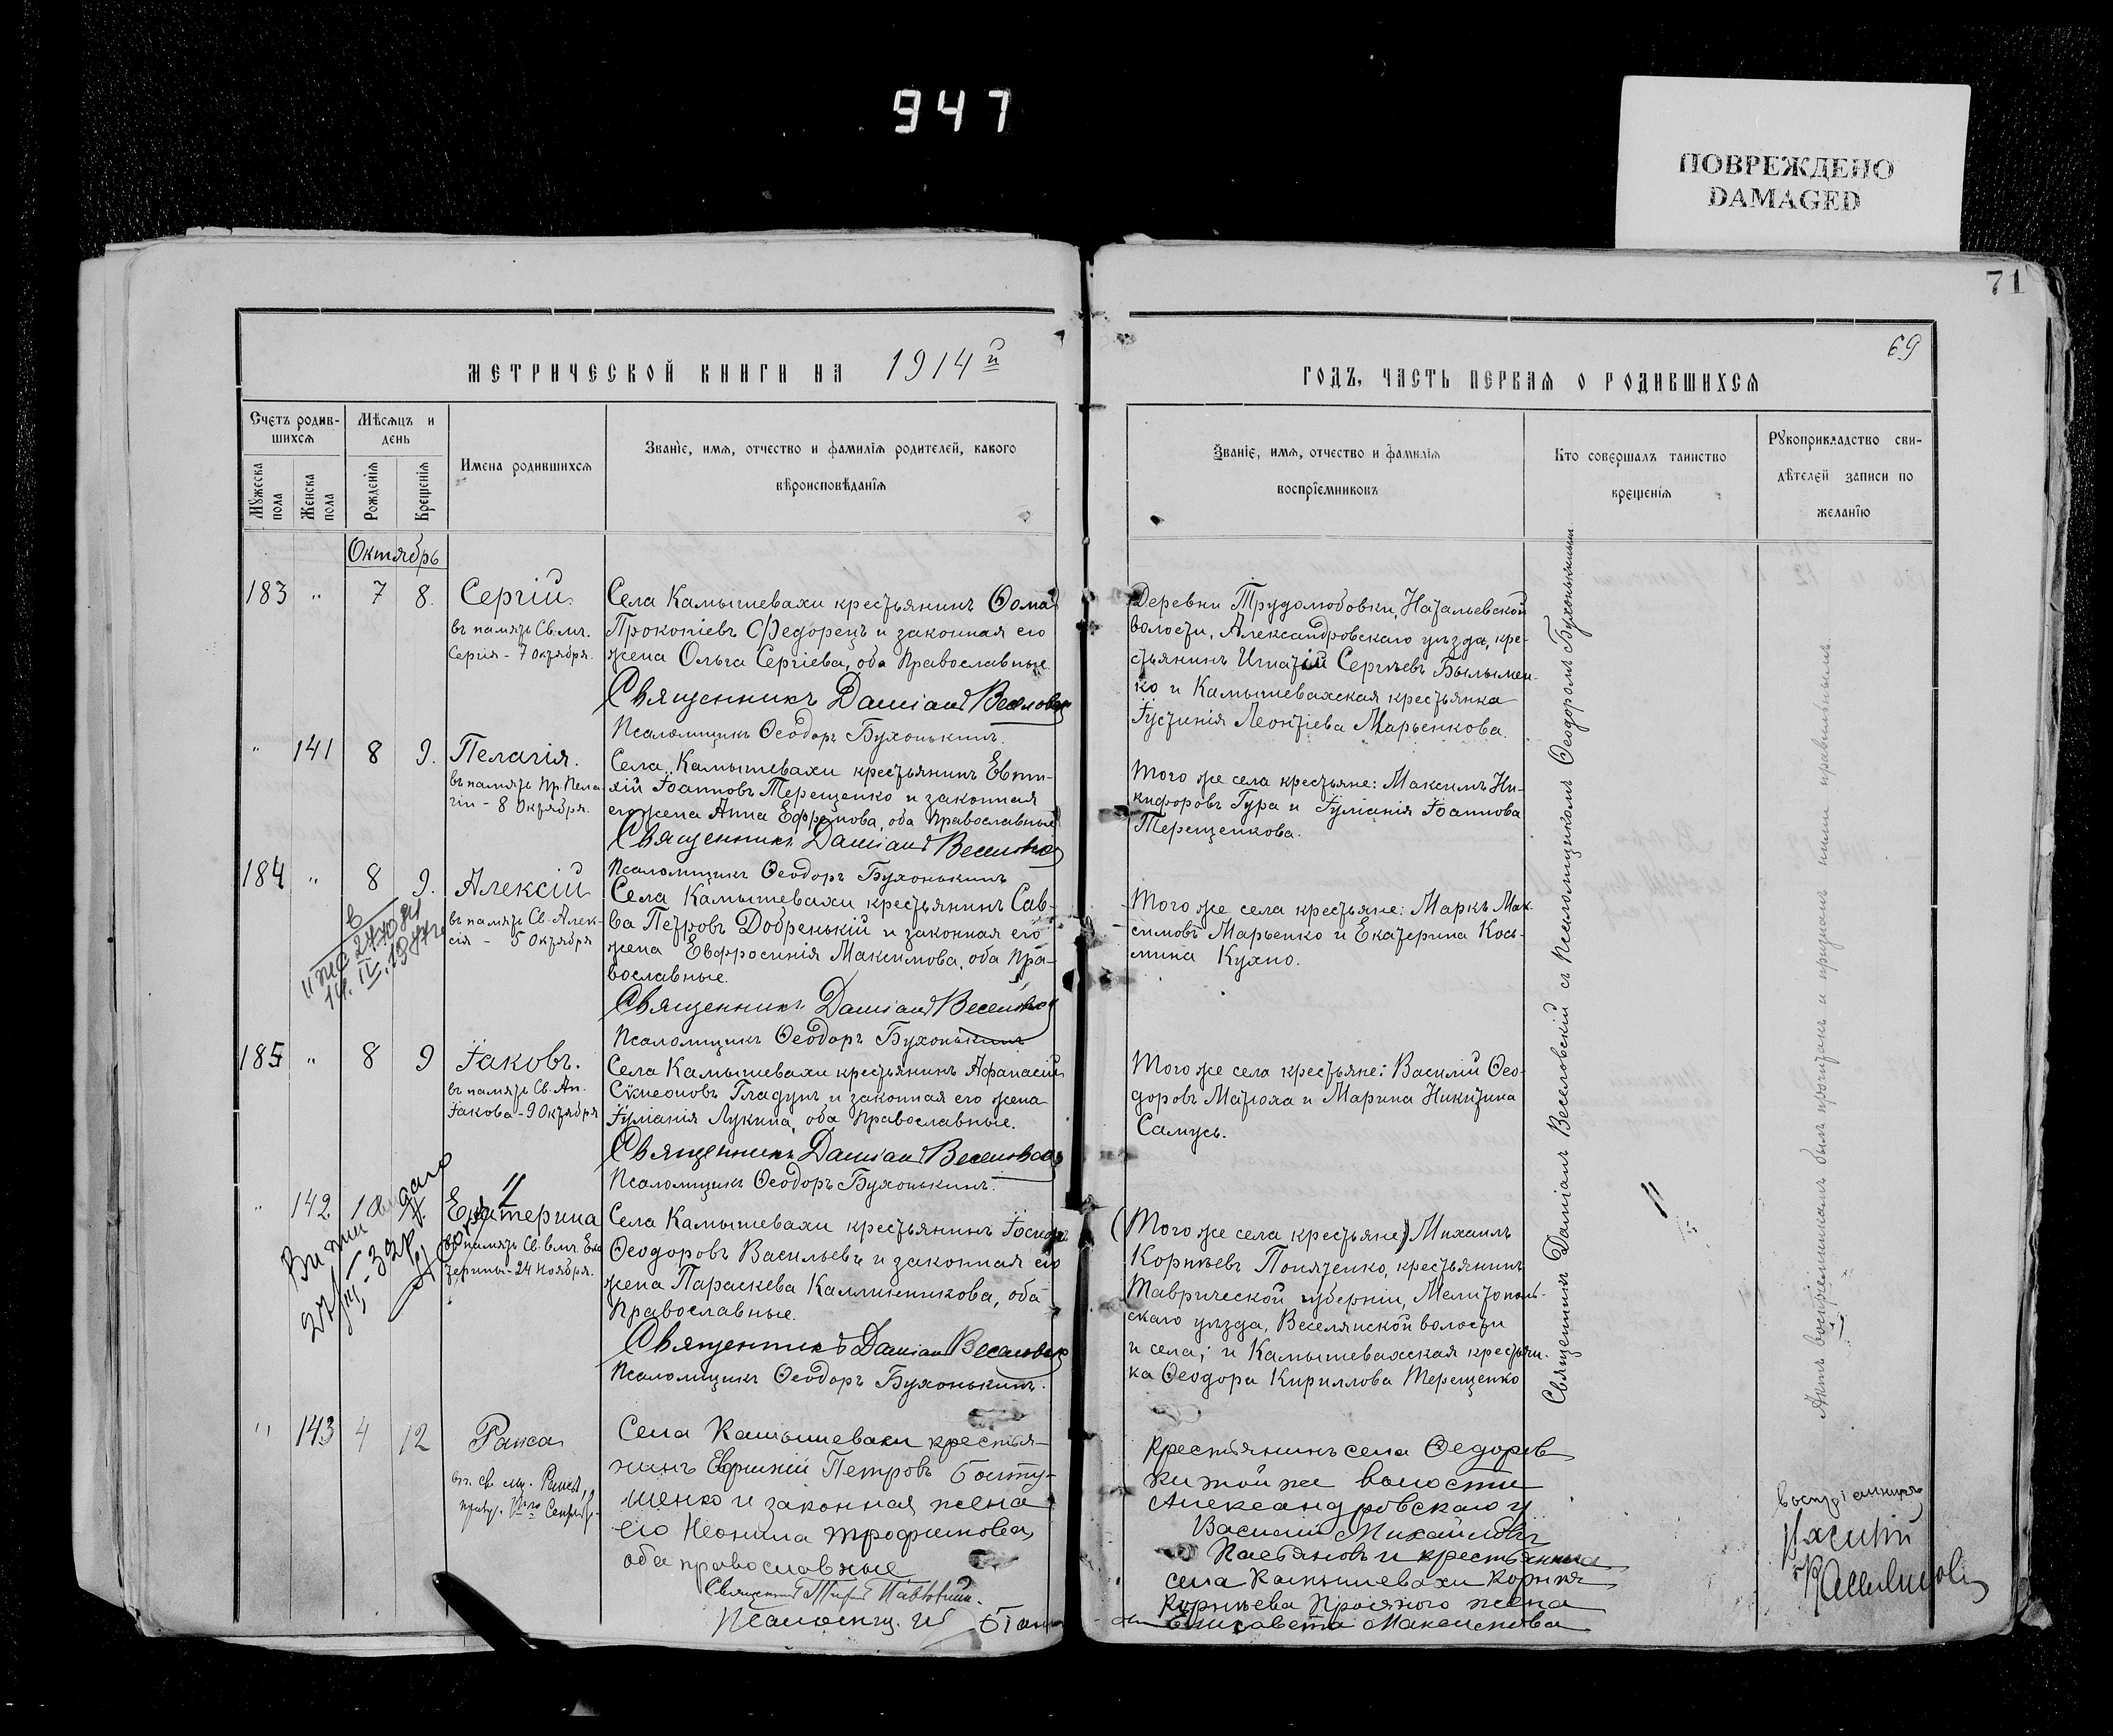 947
ПОВРЕЖДЕНО
DAMAGED
71
69
МЕТРИЧЕСКОЙ КНИГИ НА 1914й
Счетъ родив-
шихся
Мѣсяцъ и
день
Мужеска
пола
Женска
пола
Рожденія
Крещенія
Имена родившихся
Званіе, имя, отчество и фамилія родителей, какого
вѣроисповѣданія
Октябрь
183 " 7 8. Сергій
въ память Св. мч.
Сергія - 7 Октября.
Села Камышевахи крестьянинъ Ѳома
Прокопіевъ Федорецъ и законная его
жена Ольга Сергіева, оба Православные.
Священникъ Даміанъ Веселовскій
Псаломщикъ Ѳеодоръ Бухонькинъ.
" 141 8 9. Пелагія.
въ память Пр. Пела
гіи - 8 Октября.
Села Камышевахи крестьянинъ Евти-
хій Іоанновъ Терещенко и законная
его жена Анна Ефремова, оба Православные
Священникъ Даміанъ Веселовскій
Псаломщикъ Ѳеодоръ Бухонькинъ
184 " 8 9. Алексій
въ память Св. Алек-
сія - 5 Октября
14. IV. 1944г
Села Камышевахи крестьянинъ Сав-
ва Петровъ Добренькій и законная его
жена Евфросинія Максимова, оба Пра-
вославные.
Священникъ Даміанъ Веселовскій
Псаломщикъ Ѳеодоръ Бухонькинъ
185 " 8 9 Іаковъ.
въ память Св. Ап.
Іакова - 9 Октября
Села Камышевахи крестьянинъ Афанасій
Сѵмеоновъ Гладунъ и законная его жена
Іуліанія Лукина, оба Православные.
Священникъ Даміанъ Веселовскій
Псаломщикъ Ѳеодоръ Бухонькинъ.
" 142 Екатерина
въ память Св. влмч. Ека
терины - 24 Ноября.
Села Камышевахи крестьянинъ Іосифъ
Ѳеодоровъ Васильевъ и законная его
жена Параскева Каллиникова, оба
Православные.
Священникъ Даміанъ Веселовскій
Псаломщикъ Ѳеодоръ Бухонькинъ.
" 143 4 12 Раиса
Села Камышевахи крестья-
нинъ Евфимій Петровъ Болту-
шенко и законная жена
его Неонила Трофимова,
оба православные
Священникъ
Псаломщ.
ГОДЪ, ЧАСТЬ ПЕРВАЯ О РОДИВШИХСЯ
Званіе, имя, отчество и фамилія
воспріемниковъ
Кто совершалъ таинство
крещенія
Рукоприкладство сви-
дѣтелей записи по
желанію
Деревни Трудолюбовки, Натальевской
волости, Александровскаго уѣзда, кре-
стьянинъ Игнатій Сергѣевъ Былымен-
ко и Камышевахская крестьянка
Іустинія Леонтіева Марьенкова.
Того же села крестьяне: Максимъ Ни-
кифоровъ Гура и Іуліанія Іоаннова
Терещенкова.
Того же села крестьяне: Маркъ Мак-
симовъ Марьенко и Екатерина Кось-
мина Кухно.
Того же села крестьяне: Василій Ѳео-
доровъ Матюха и Марина Никитина
Самусь.
(Того же села крестьяне) Михаилъ
Корнѣевъ Понятенко, крестьянинъ
Таврической губерніи, Мелитополь-
скаго уѣзда, Веселянской волости
и села; и Камышевахская крестьян-
ка Ѳеодора Кириллова Терещенко
крестьянинъ села Ѳедоров
ки той же волости
Александровскаго у
Василій Михайловъ
Касьяновъ и крестьянина
села Камышевахи Корнія
Корнѣева Просяного жена
Елисавета Максимова
Священникъ Даміанъ Веселовскій съ Псаломщикомъ Ѳеодоромъ Бухонькинымъ
Актъ воспріемникамъ былъ прочитанъ и признанъ ими правильнымъ.